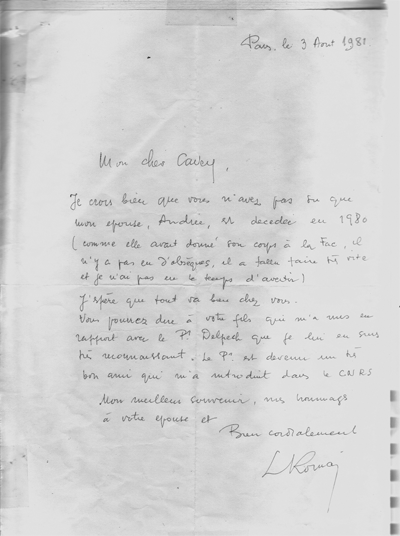 Paris, le 3 Aout 1981
Mon cher
Je crois bien que vous n'avez pas su que
mon epouse, Andrée, est decedée en 1980
(comme elle avait donné son corps à la Fac, il
n'y a pas eu d'obsèques, il a fallu faire très vite
et je n'ai pas eu le temps d'avertir)
J'espère que tout va bien chez vous.
Vous pourrez dire à votre fils qui m'a mis en
rapport avec le Pr Delpech que je lui en suis
très reconnaissant. Le Pr est devenu un très
bon ami qui m'a introduit dans le CNRS
Mon meilleur souvenir, mes hommages
à votre epouse et
Bien cordialement